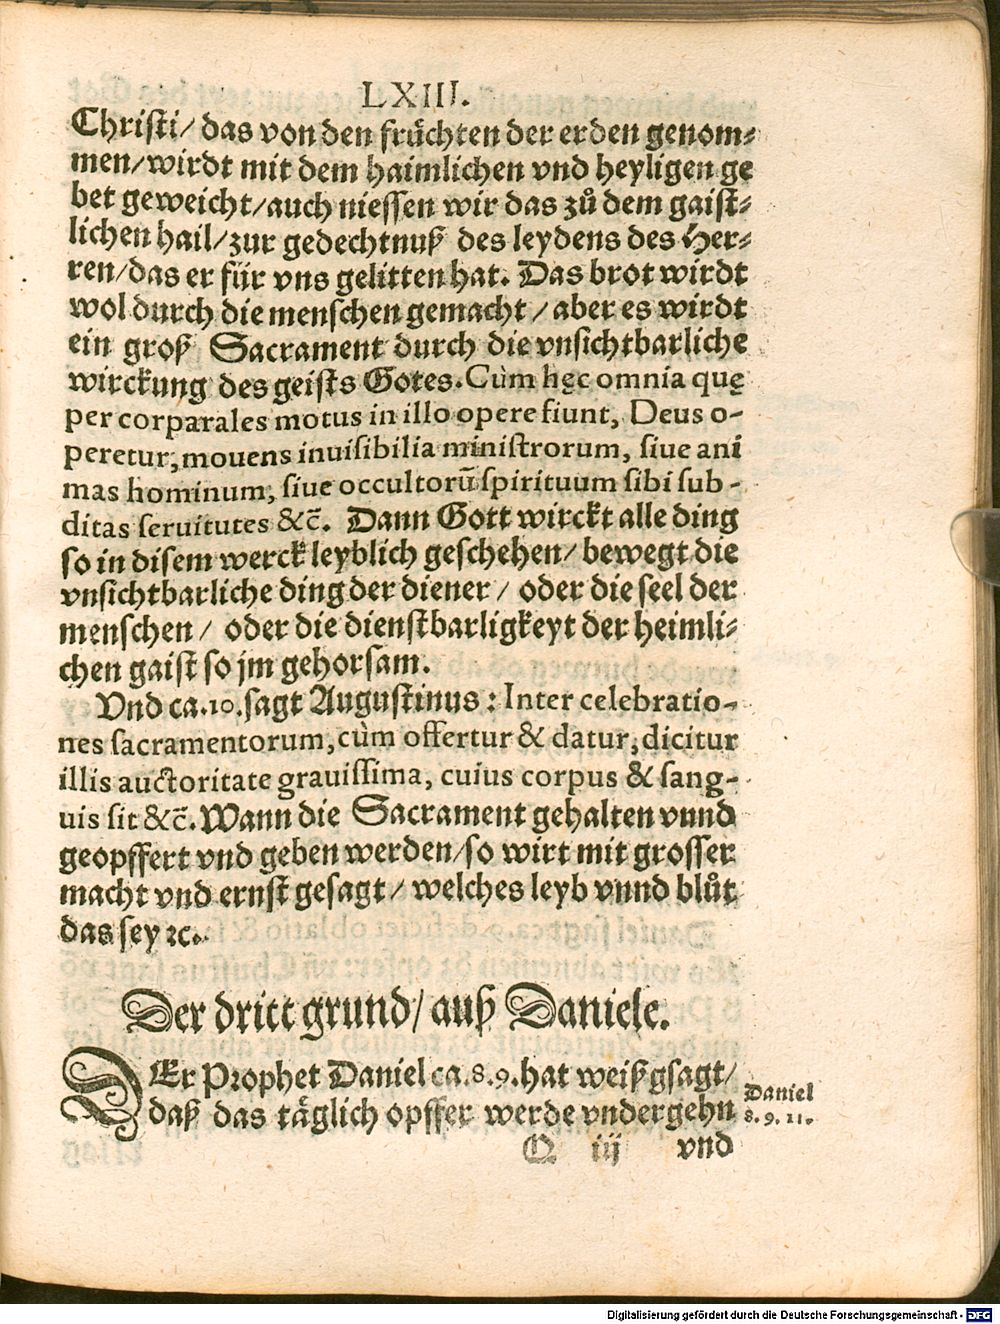 LXIII.
Christi/ das von den früchten der erden genom⸗
men/ wirdt mit dem haimlichen vnd heyligen ge
bet geweicht/ auch niessen wir das zů dem gaist⸗
lichen hail/ zur gedechtnuß des leydens des Her⸗
ren/ das er für vns gelitten hat. Das brot wirdt
wol durch die menschen gemacht / aber es wirdt
ein groß Sacrament durch die vnsichtbarliche
wirckung des geists Gotes. Cùm hęc omnia quę
per corparales motus in illo opere fiunt, Deus o-
peretur, mouens inuisibilia ministrorum, siue ani
mas hominum, siue occultorū spirituum sibi sub-
ditas seruitutes &c̄. Dann Gott wirckt alle ding
so in disem werck leyblich geschehen/ bewegt die
vnsichtbarliche ding der diener / oder die seel der
menschen / oder die dienstbarligkeyt der heimli⸗
chen gaist so jm gehorsam.
Vnd ca.10. sagt Augustinus: Inter celebratio-
nes sacramentorum, cùm offertur & datur, dicitur
illis auctoritate grauissima, cuius corpus & sang-
uis sit &c̄. Wann die Sacrament gehalten vnnd
geopffert vnd geben werden/ so wirt mit grosser
macht vnd ernst gesagt / welches leyb vnnd blůt
das sey ꝛc.
Der dritt grund/ auß Daniele.
DEr Prophet Daniel ca.8.9. hat weißgsagt/
daß das täglich opffer werde vndergehn
Daniel
8.9.11.
Q iij vnd
Digitalisierung gefördert durch die Deutsche Forschungsgemeinschaft - DFG